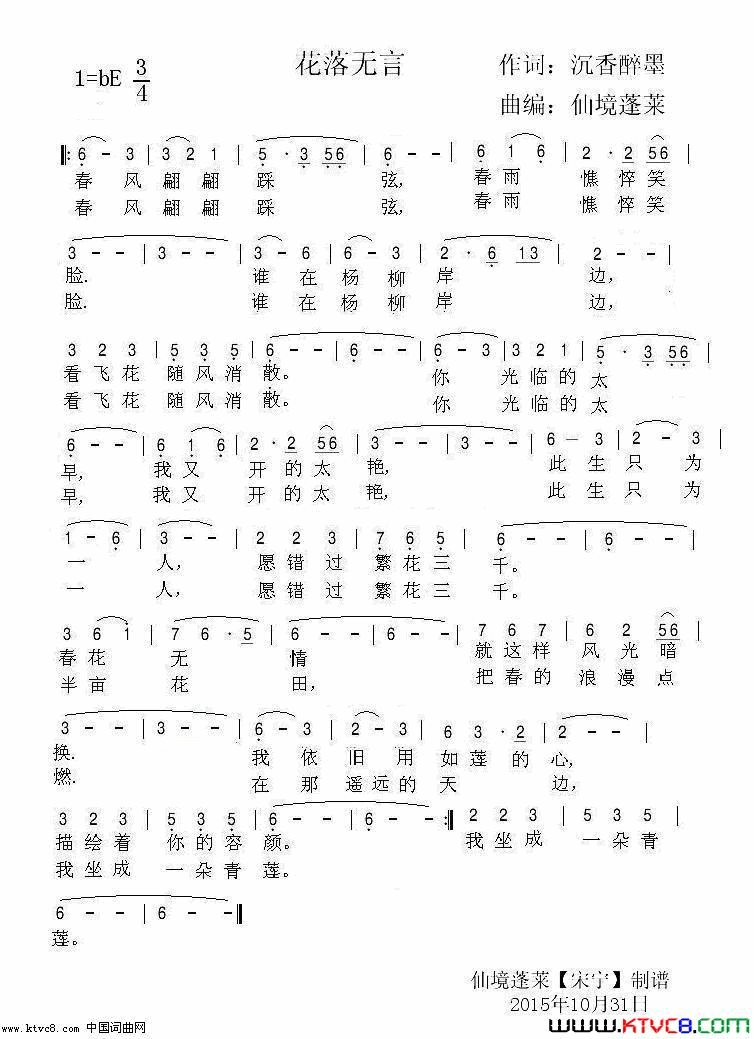 花落无言
1=bE 3/4
作词：沉香醉墨
曲编：仙境蓬莱
‖: 6 - 3 | 3 2 1 | 5 · 3 56 | 6 - - | 6 1 6 | 2 · 2 56 |
春 风 翩 翩 踩 弦, 春 雨 憔 悴 笑
春 风 翩 翩 踩 弦, 春 雨 憔 悴 笑
3 - - | 3 - - | 3 - 6 | 6 - 3 | 2 · 6 13 | 2 - - |
脸. 谁 在 杨 柳 岸 边,
脸. 谁 在 杨 柳 岸 边,
3 2 3 | 5 3 5 | 6 - - | 6 - - | 6 - 3 | 3 2 1 | 5 · 3 56 |
看 飞 花 随 风 消 散。 你 光 临 的 太
看 飞 花 随 风 消 散。 你 光 临 的 太
6 - - | 6 1 6 | 2 · 2 56 | 3 - - | 3 - - | 6 - 3 | 2 - 3 |
早, 我 又 开 的 太 艳, 此 生 只 为
早, 我 又 开 的 太 艳, 此 生 只 为
1 - 6 | 3 - - | 2 2 3 | 7 6 5 | 6 - - | 6 - - |
一 人, 愿 错 过 繁 花 三 千。
一 人, 愿 错 过 繁 花 三 千。
3 6 1 | 7 6 · 5 | 6 - - | 6 - - | 7 6 7 | 6 2 56 |
春 花 无 情 就 这 样 风 光 暗
半 亩 花 田, 把 春 的 浪 漫 点
3 - - | 3 - - | 6 - 3 | 2 - 3 | 6 3 · 2 | 2 - - |
换. 我 依 旧 用 如 莲 的 心,
燃. 在 那 遥 远 的 天 边,
3 2 3 | 5 3 5 | 6 - - | 6 - - :‖ 2 2 3 | 5 3 5 |
描 绘 着 你 的 容 颜。 我 坐 成 一 朵 青
我 坐 成 一 朵 青 莲。
6 - - | 6 - - ‖
莲。
仙境蓬莱【宋宁】制谱
2015年10月31日
www.ktvc8.com 中国词曲网
WWW.KTVC8.COM